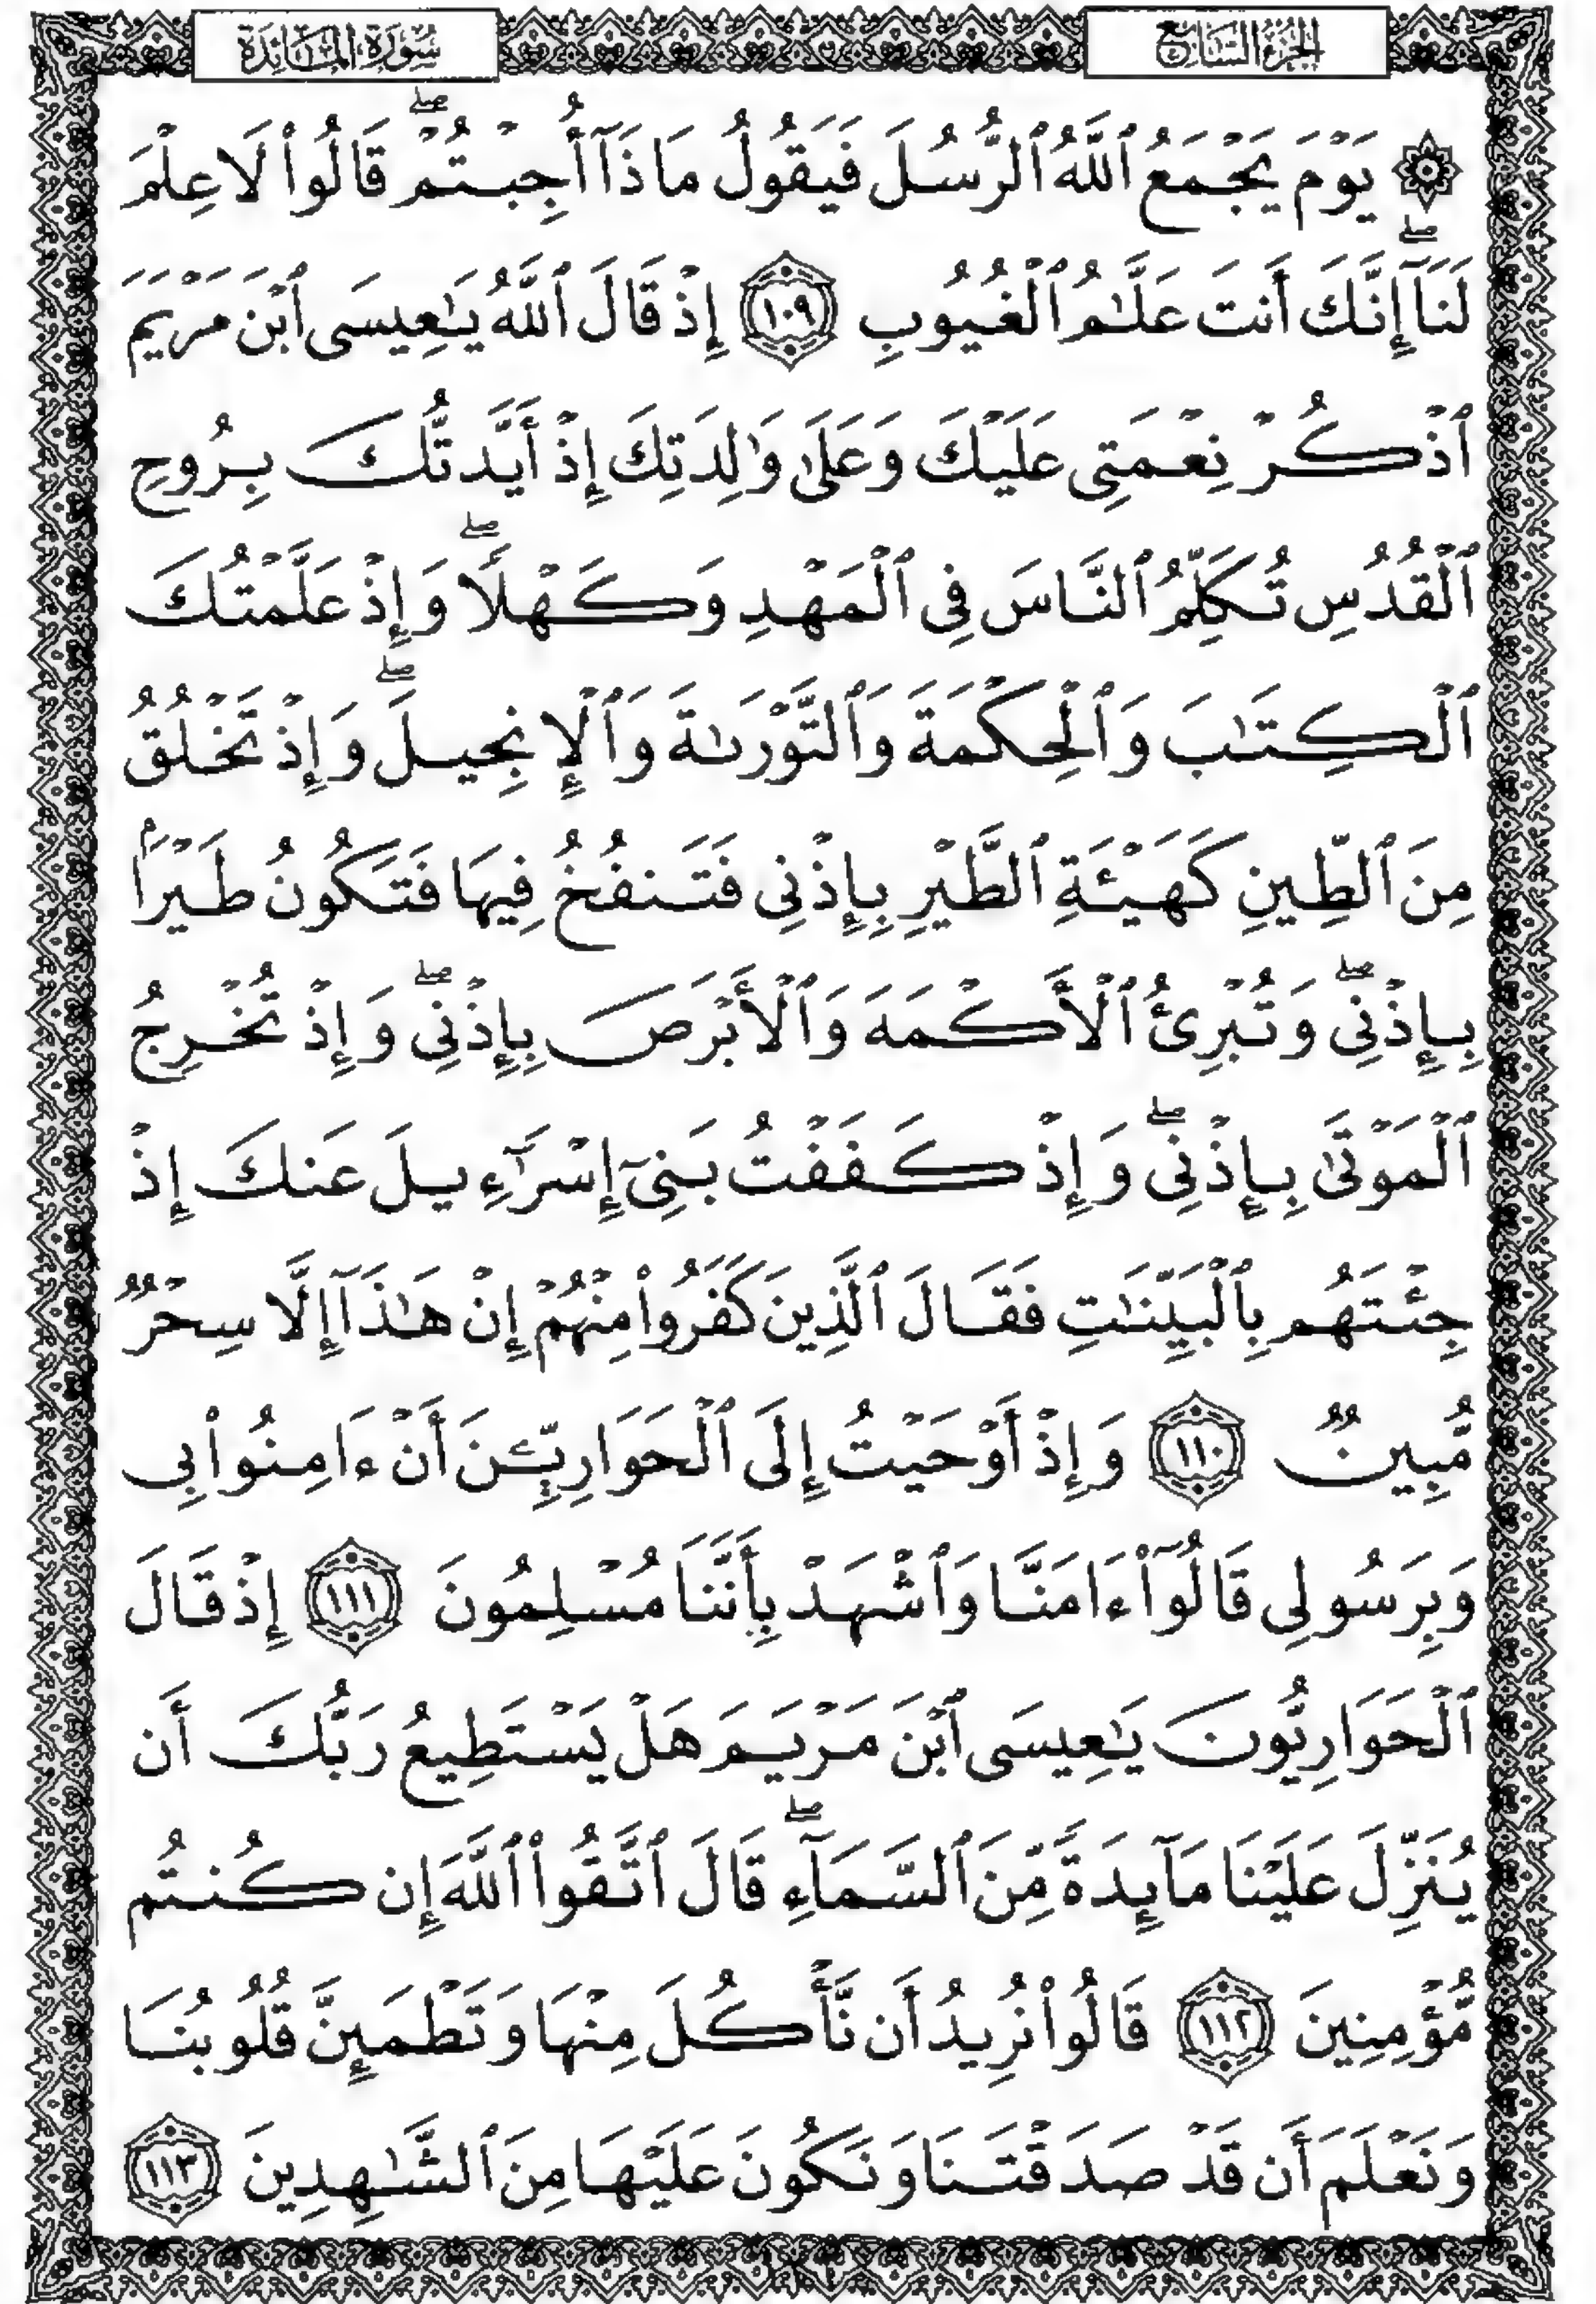 الجزء السابع
سورة المائدة
۞ يَوْمَ يَجْمَعُ ٱللَّهُ ٱلرُّسُلَ فَيَقُولُ مَاذَآ أُجِبْتُمْۖ قَالُوا۟ لَا عِلْمَ
لَنَآۖ إِنَّكَ أَنتَ عَلَّٰمُ ٱلْغُيُوبِ ١٠٩ إِذْ قَالَ ٱللَّهُ يَٰعِيسَى ٱبْنَ مَرْيَمَ
ٱذْكُرْ نِعْمَتِى عَلَيْكَ وَعَلَىٰ وَٰلِدَتِكَ إِذْ أَيَّدتُّكَ بِرُوحِ
ٱلْقُدُسِ تُكَلِّمُ ٱلنَّاسَ فِى ٱلْمَهْدِ وَكَهْلًاۖ وَإِذْ عَلَّمْتُكَ
ٱلْكِتَٰبَ وَٱلْحِكْمَةَ وَٱلتَّوْرَىٰةَ وَٱلْإِنجِيلَۖ وَإِذْ تَخْلُقُ
مِنَ ٱلطِّينِ كَهَيْـَٔةِ ٱلطَّيْرِ بِإِذْنِى فَتَنفُخُ فِيهَا فَتَكُونُ طَيْرًۢا
بِإِذْنِىۖ وَتُبْرِئُ ٱلْأَكْمَهَ وَٱلْأَبْرَصَ بِإِذْنِىۖ وَإِذْ تُخْرِجُ
ٱلْمَوْتَىٰ بِإِذْنِىۖ وَإِذْ كَفَفْتُ بَنِىٓ إِسْرَٰٓءِيلَ عَنكَ إِذْ
جِئْتَهُم بِٱلْبَيِّنَٰتِ فَقَالَ ٱلَّذِينَ كَفَرُوا۟ مِنْهُمْ إِنْ هَٰذَآ إِلَّا سِحْرٌ
مُّبِينٌ ١١٠ وَإِذْ أَوْحَيْتُ إِلَى ٱلْحَوَارِيِّـۧنَ أَنْ ءَامِنُوا۟ بِى
وَبِرَسُولِى قَالُوٓا۟ ءَامَنَّا وَٱشْهَدْ بِأَنَّنَا مُسْلِمُونَ ١١١ إِذْ قَالَ
ٱلْحَوَارِيُّونَ يَٰعِيسَى ٱبْنَ مَرْيَمَ هَلْ يَسْتَطِيعُ رَبُّكَ أَن
يُنَزِّلَ عَلَيْنَا مَآئِدَةً مِّنَ ٱلسَّمَآءِۖ قَالَ ٱتَّقُوا۟ ٱللَّهَ إِن كُنتُم
مُّؤْمِنِينَ ١١٢ قَالُوا۟ نُرِيدُ أَن نَّأْكُلَ مِنْهَا وَتَطْمَئِنَّ قُلُوبُنَا
وَنَعْلَمَ أَن قَدْ صَدَقْتَنَا وَنَكُونَ عَلَيْهَا مِنَ ٱلشَّٰهِدِينَ ١١٣